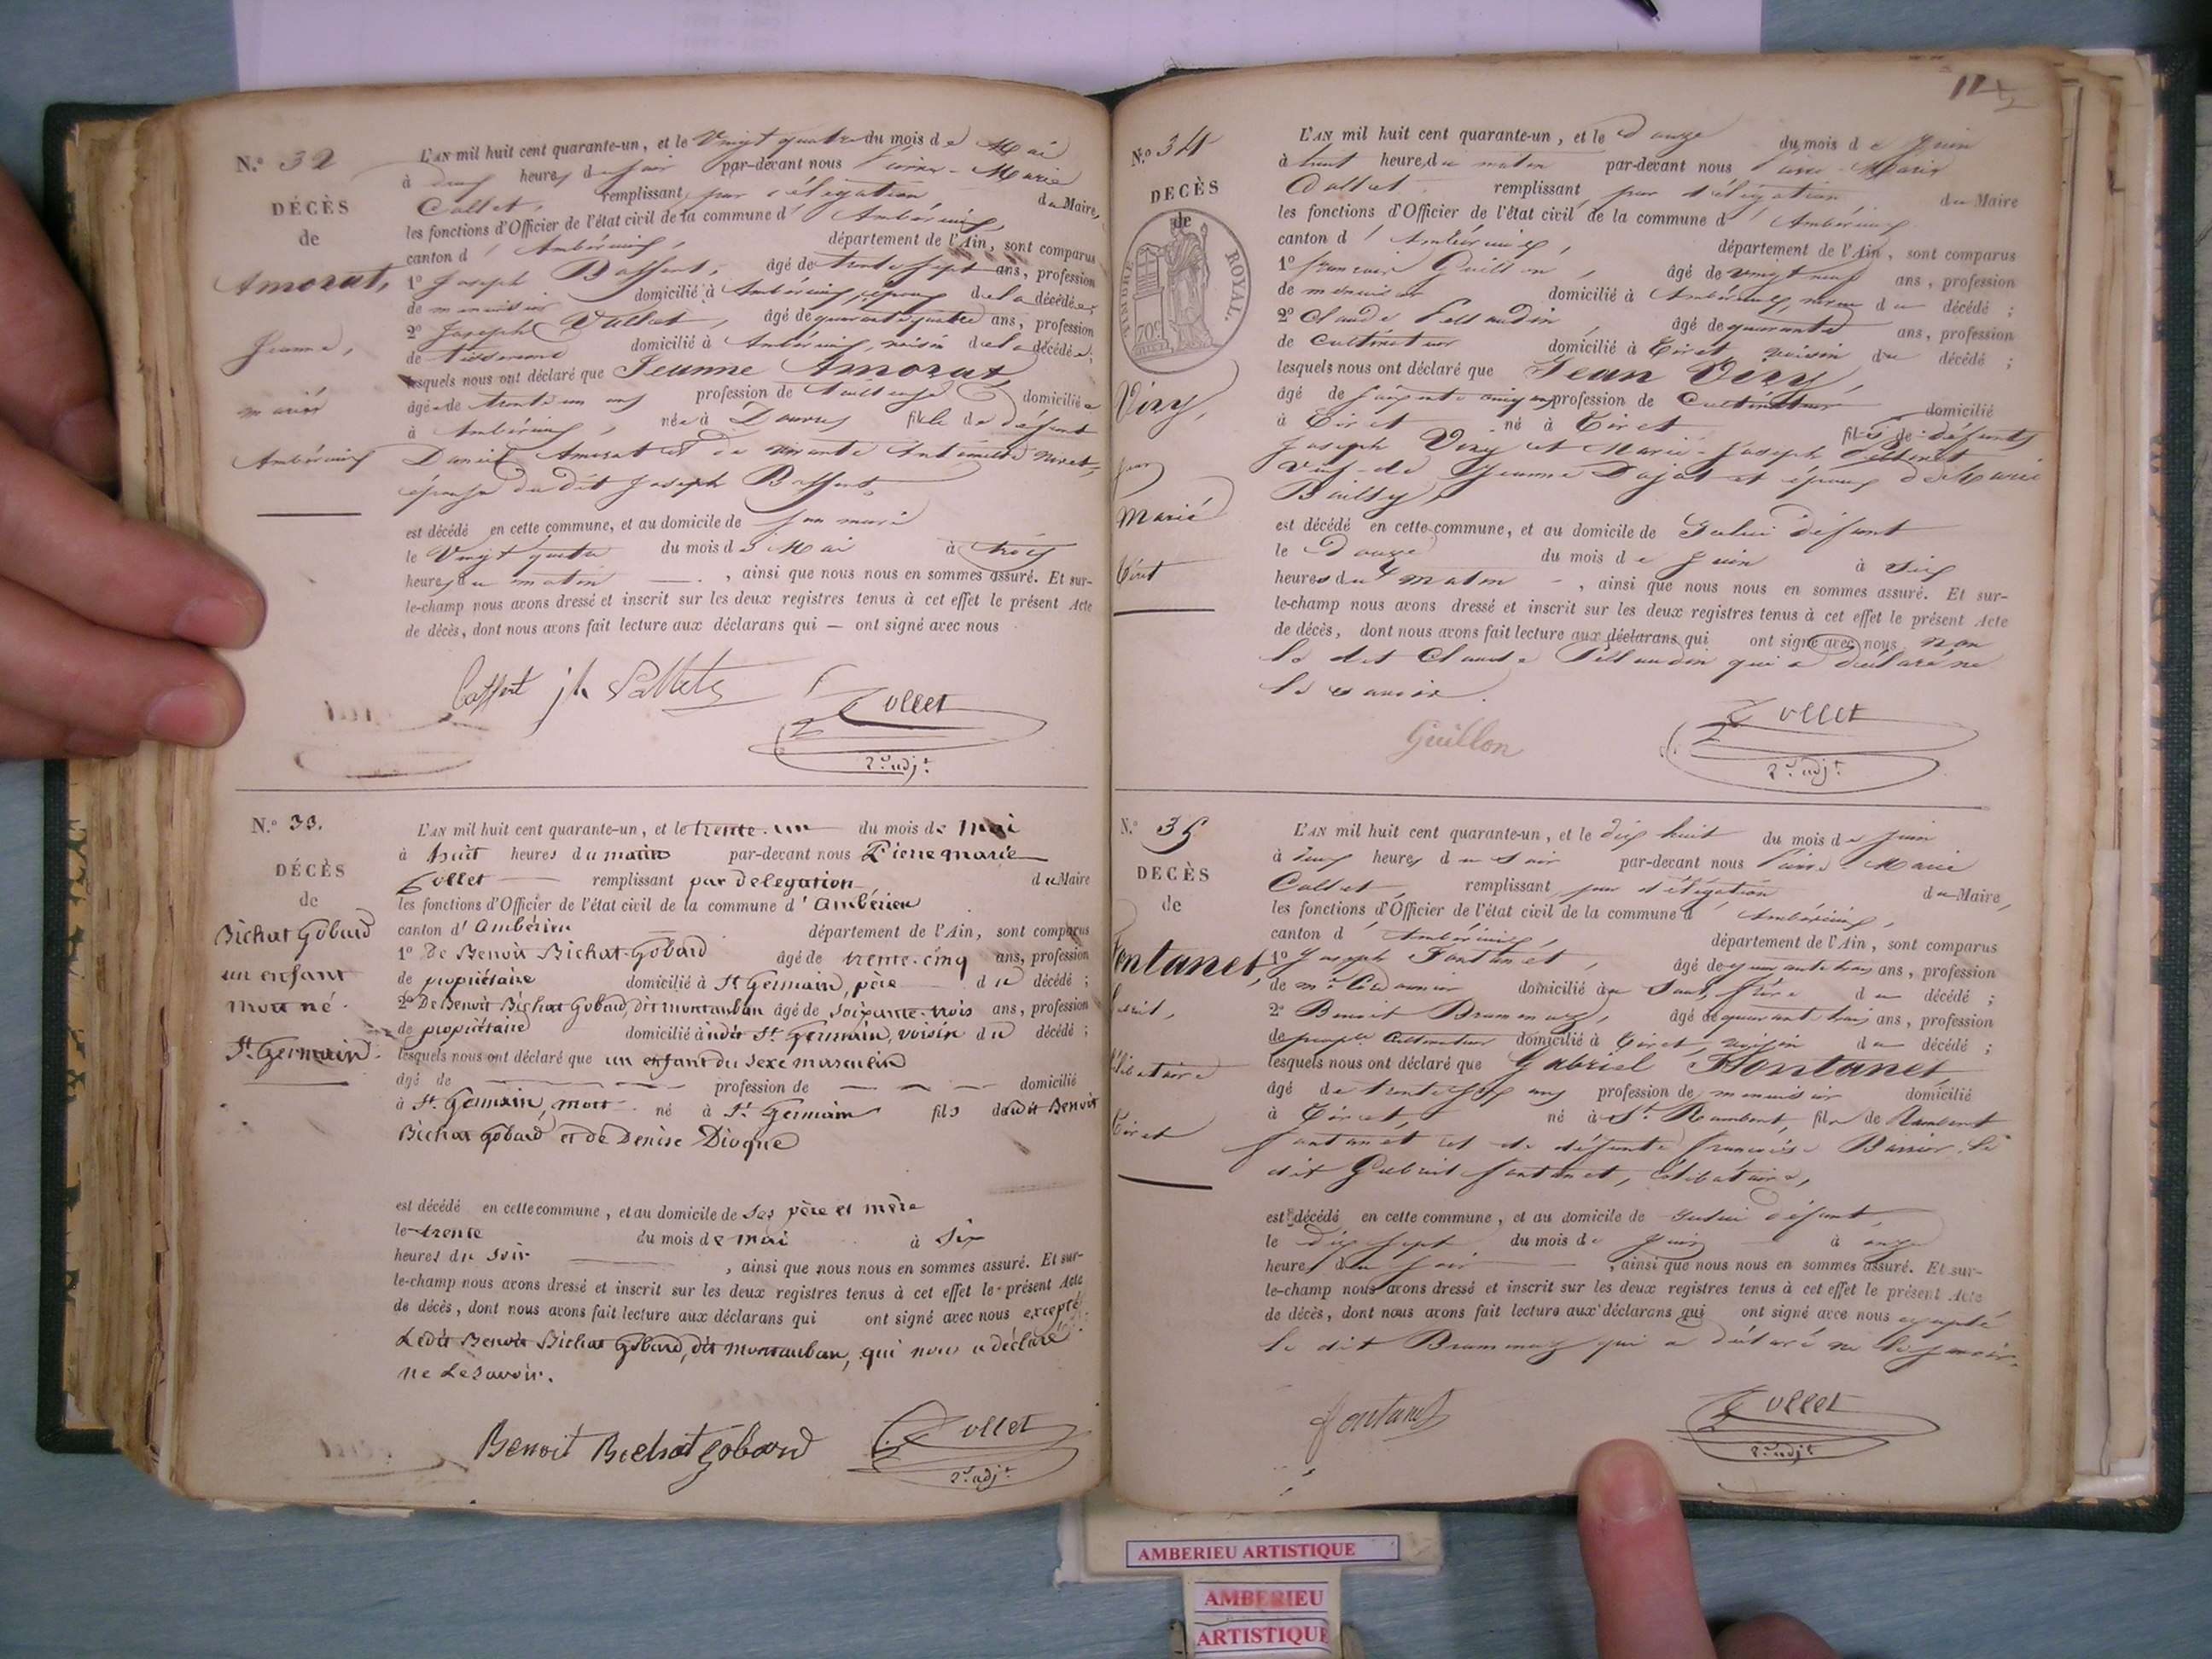 N.º 32
DÉCÈS
de
Amorat,
Jeanne,
mariée
Ambérieux
L'AN mil huit cent quarante-un, et le Vingt quatre du mois de Mai
à deux heures du soir par-devant nous Pierre-Marie
Collet, remplissant, par délégation du Maire,
les fonctions d'Officier de l'état civil de la commune d' Ambérieux,
canton d' Ambérieux, département de l'Ain, sont comparus
1º Joseph Baffert, âgé de trente sept ans, profession
de menuisier domicilié à Ambérieux, époux de la décédée;
2º Joseph Vallet, âgé de quarante quatre ans, profession
de tisserand domicilié à Ambérieux, voisin de la décédée;
lesquels nous ont déclaré que Jeanne Amorat,
âgée de trente un ans profession de Tailleuse domiciliée
à Ambérieux, née à Douvres fille de défunt
Daniel Amorat et de vivante Antoinette
épouse du dit Joseph Baffert,
est décédé en cette commune, et au domicile de son mari
le Vingt quatre du mois de Mai à trois
heures du matin , ainsi que nous nous en sommes assuré. Et sur-
le-champ nous avons dressé et inscrit sur les deux registres tenus à cet effet le présent Acte
de décès, dont nous avons fait lecture aux déclarans qui — ont signé avec nous
Baffert
Collet
2d. adjt.
N.º 33.
DÉCÈS
de
Bichat Gobard
un enfant
mort né.
St. Germain.
L'AN mil huit cent quarante-un, et le trente-un du mois de Mai
à huit heures du matin par-devant nous Pierre marie
Collet remplissant par délégation du Maire
les fonctions d'Officier de l'état civil de la commune d' Ambérieu
canton d' Ambérieu département de l'Ain, sont comparus
1º De Benoit Bichat-Gobard âgé de trente-cinq ans, profession
de propriétaire domicilié à St Germain, père du décédé;
2º De Benoit Bichat Gobard, dit montauban âgé de soixante-trois ans, profession
de propriétaire domicilié à udit St. Germain, voisin du décédé;
lesquels nous ont déclaré que un enfant du sexe masculin
âgé de — — — profession de — — — domicilié
à St. Germain, mort né à St. Germain fils dudit Benoit
Bichat Gobard et de Denise Diogue
est décédé en cette commune, et au domicile de ses père et mère
le trente du mois de mai à six
heures du soir , ainsi que nous nous en sommes assuré. Et sur-
le-champ nous avons dressé et inscrit sur les deux registres tenus à cet effet le présent Acte
de décès, dont nous avons fait lecture aux déclarans qui ont signé avec nous excepté
Ledit Benoit Bichat Gobard, dit montauban, qui nous a déclaré
ne le savoir.
Benoit Bichat Gobard
Collet
2d. adjt.
N.º 34
DÉCÈS
de
TIMBRE ROYAL.
70c.
Véry,
Jean
Marié
Tiret
L'AN mil huit cent quarante-un, et le douze du mois de Juin
à huit heures du matin par-devant nous Pierre-Marie
Collet remplissant, par délégation, du Maire
les fonctions d'Officier de l'état civil de la commune d' Ambérieux
canton d' Ambérieux, département de l'Ain, sont comparus
1º françois Guillon, âgé de vingt neuf ans, profession
de menuisier domicilié à Ambérieux, neveu du décédé;
2º Claude Pellaudin, âgé de quarante ans, profession
de Cultivateur domicilié à Tiret voisin du décédé;
lesquels nous ont déclaré que Jean Véry,
âgé de soixante cinq ans profession de Cultivateur domicilié
à Tiret né à Tiret fils de défunts
Joseph Véry et Marie-Joseph
Veuf de Jeanne Dajat et époux de Marie
Bailly,
est décédé en cette commune, et au domicile de Celui défunt
le Douze du mois de Juin à six
heures du matin , ainsi que nous nous en sommes assuré. Et sur-
le-champ nous avons dressé et inscrit sur les deux registres tenus à cet effet le présent Acte
de décès, dont nous avons fait lecture aux déclarans qui ont signé avec nous non
le dit Claude Pellaudin qui a déclaré ne
le savoir.
Guillon
Collet
2d. adjt.
N.º 35
DÉCÈS
de
Fontanet,
Célibataire
Tiret
L'AN mil huit cent quarante-un, et le dix huit du mois de Juin
à deux heures du soir par-devant nous Pierre Marie
Collet remplissant par délégation du Maire,
les fonctions d'Officier de l'état civil de la commune d' Ambérieux,
canton d' Ambérieux, département de l'Ain, sont comparus
1º Joseph Fontanet, âgé de quarante trois ans, profession
de md. Cordonnier domicilié à , frère du décédé;
2º Benoit Brammaz, âgé de quarante trois ans, profession
de Cultivateur domicilié à Tiret, voisin du décédé;
lesquels nous ont déclaré que Gabriel Fontanet,
âgé de trente six ans profession de menuisier domicilié
à Tiret, né à St. Rambert, fils de Rambert
fontanet et de défunte françoise Barrier, le
dit Gabriel fontanet, célibataire,
est décédé en cette commune, et au domicile de Celui défunt,
le dix sept du mois de Juin à onze
heures du soir , ainsi que nous nous en sommes assuré. Et sur-
le-champ nous avons dressé et inscrit sur les deux registres tenus à cet effet le présent Acte
de décès, dont nous avons fait lecture aux déclarans qui ont signé avec nous excepté
le dit Brammaz qui a déclaré ne le savoir.
fontanet
Collet
2d. adjt.
AMBERIEU ARTISTIQUE
AMBERIEU
ARTISTIQUE